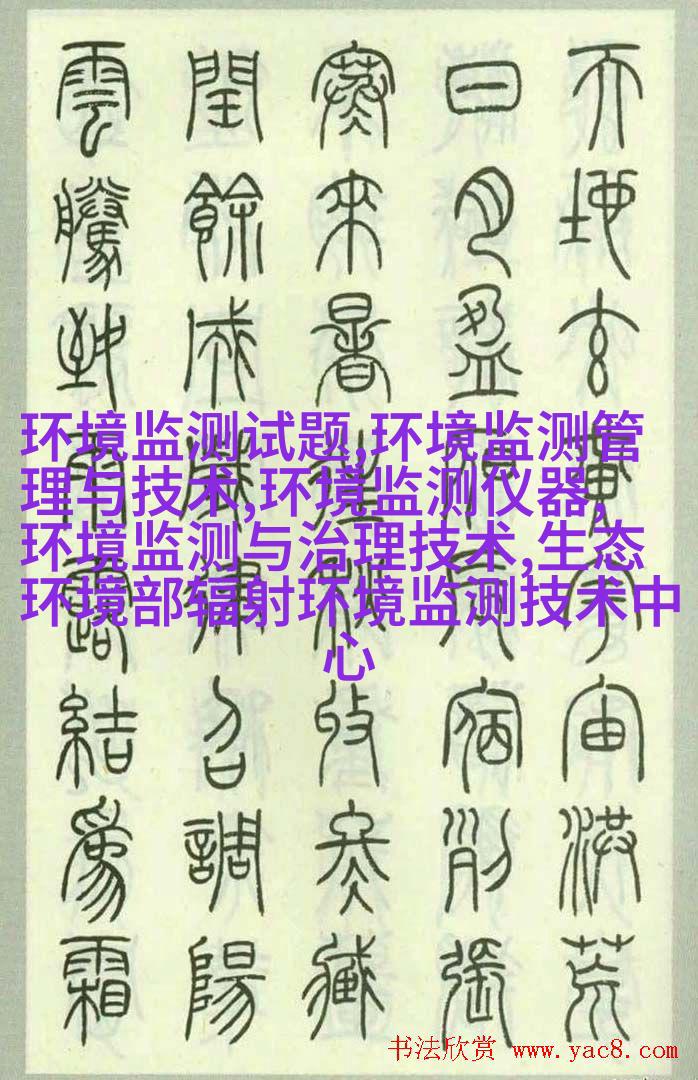 天地玄黃宇宙洪荒
日月盈昃辰宿列張
寒來暑往秋收冬藏
閏餘成歲律召調陽
雲騰致雨露結為霜
环境监测试题,环境监测管
理与技术,环境监测仪器,
环境监测与治理技术,生态
环境部辐射环境监测技术中
心
书法欣赏 www.yac8.com